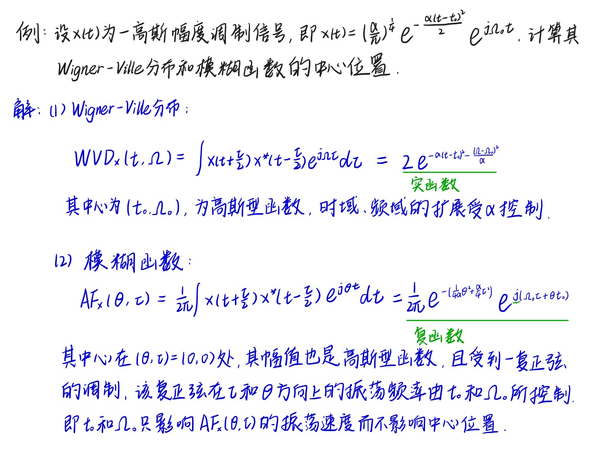 例: 设x(t)为一高斯幅度调制信号, 即 x(t)=(α/π)^{1/4} e^{-α(t-t₀)²/2} e^{jΩ₀t}, 计算其
Wigner-Ville分布和模糊函数的中心位置.
解: (1) Wigner-Ville分布:
WVDₓ(t, Ω) = ∫x(t+τ/2)x*(t-τ/2)e^{jΩτ}dτ = 2e^{-α(t-t₀)²-(Ω-Ω₀)²/α}
实函数
其中心为(t₀,Ω₀), 为高斯型函数, 时域、频域的扩展受α控制.
(2) 模糊函数:
AFₓ(θ, τ) = 1/2π ∫x(t+τ/2)x*(t-τ/2)e^{jθt}dt = 1/2π e^{-(1/4α θ²+α/4 τ²)} e^{j(Ω₀τ+θt₀)}
复函数
其中心在(θ,τ)=(0,0)处, 其幅值也是高斯型函数, 且受到一复正弦
的调制, 该复正弦在τ和θ方向上的振荡频率由t₀和Ω₀所控制.
即t₀和Ω₀只影响AFₓ(θ,τ)的振荡速度而不影响中心位置.